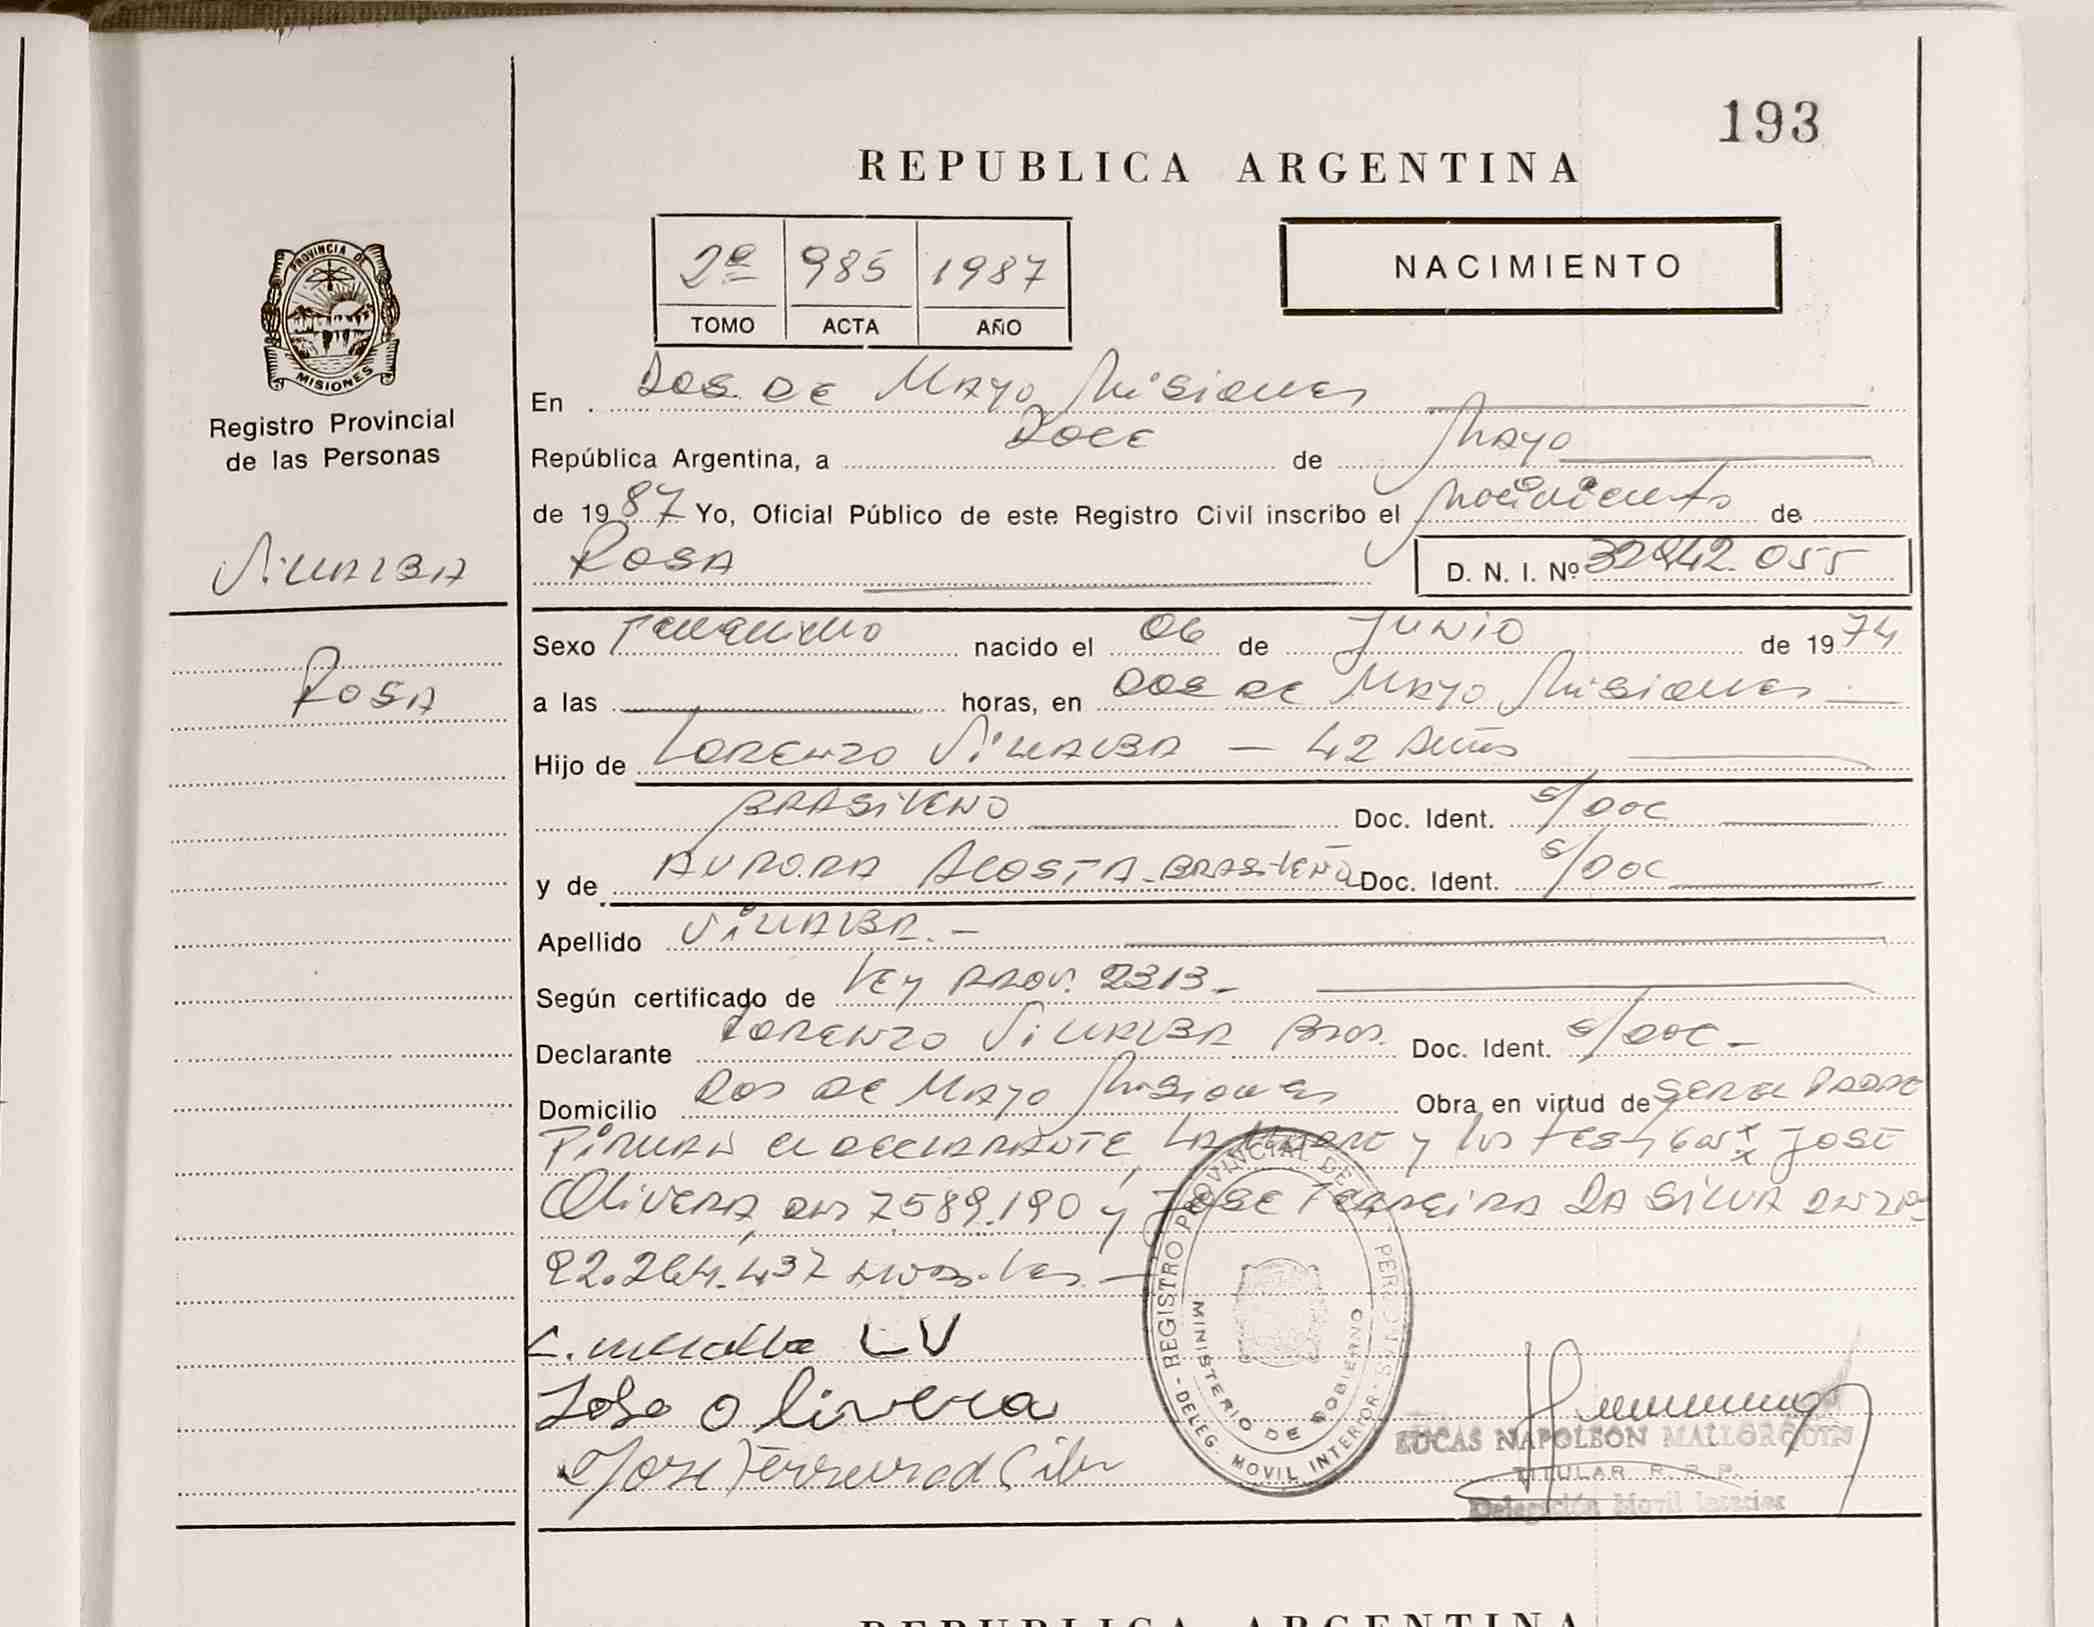 193
REPUBLICA ARGENTINA
2º 985 1987
TOMO ACTA AÑO
NACIMIENTO
PROVINCIA DE
MISIONES
Registro Provincial
de las Personas
Villalba
Rosa
En Dos de Mayo Misiones
República Argentina, a Doce de Mayo
de 1987 Yo, Oficial Público de este Registro Civil inscribo el nacimiento de
Rosa D. N. I. Nº 32.942.055
Sexo Femenino nacido el 06 de Junio de 1974
a las horas, en Dos de Mayo Misiones
Hijo de Lorenzo Villalba — 42 años
Brasileño Doc. Ident. s/Doc
y de Aurora Acosta - Brasileña Doc. Ident. s/Doc
Apellido Villalba. -
Según certificado de Ley Prov. 2313 -
Declarante Lorenzo Villalba Bras. Doc. Ident. s/Doc -
Domicilio Dos de Mayo Misiones Obra en virtud de ser el Padre
Firman el declarante, la Madre y los testigos José
Olivera, DNI 7.589.190 y Jose Ferreira Da Silva DNI Nº
92.264.437
L. Villalba LV
Jose Olivera
Jose Ferreira d Cilv
REGISTRO PROVINCIAL DE
MINISTERIO DE GOBIERNO
DELEG. MOVIL INTERIOR
LUCAS NAPOLEON MALLORQUIN
TITULAR R. P. P.
Delegación Movil Interior
REPUBLICA ARGENTINA